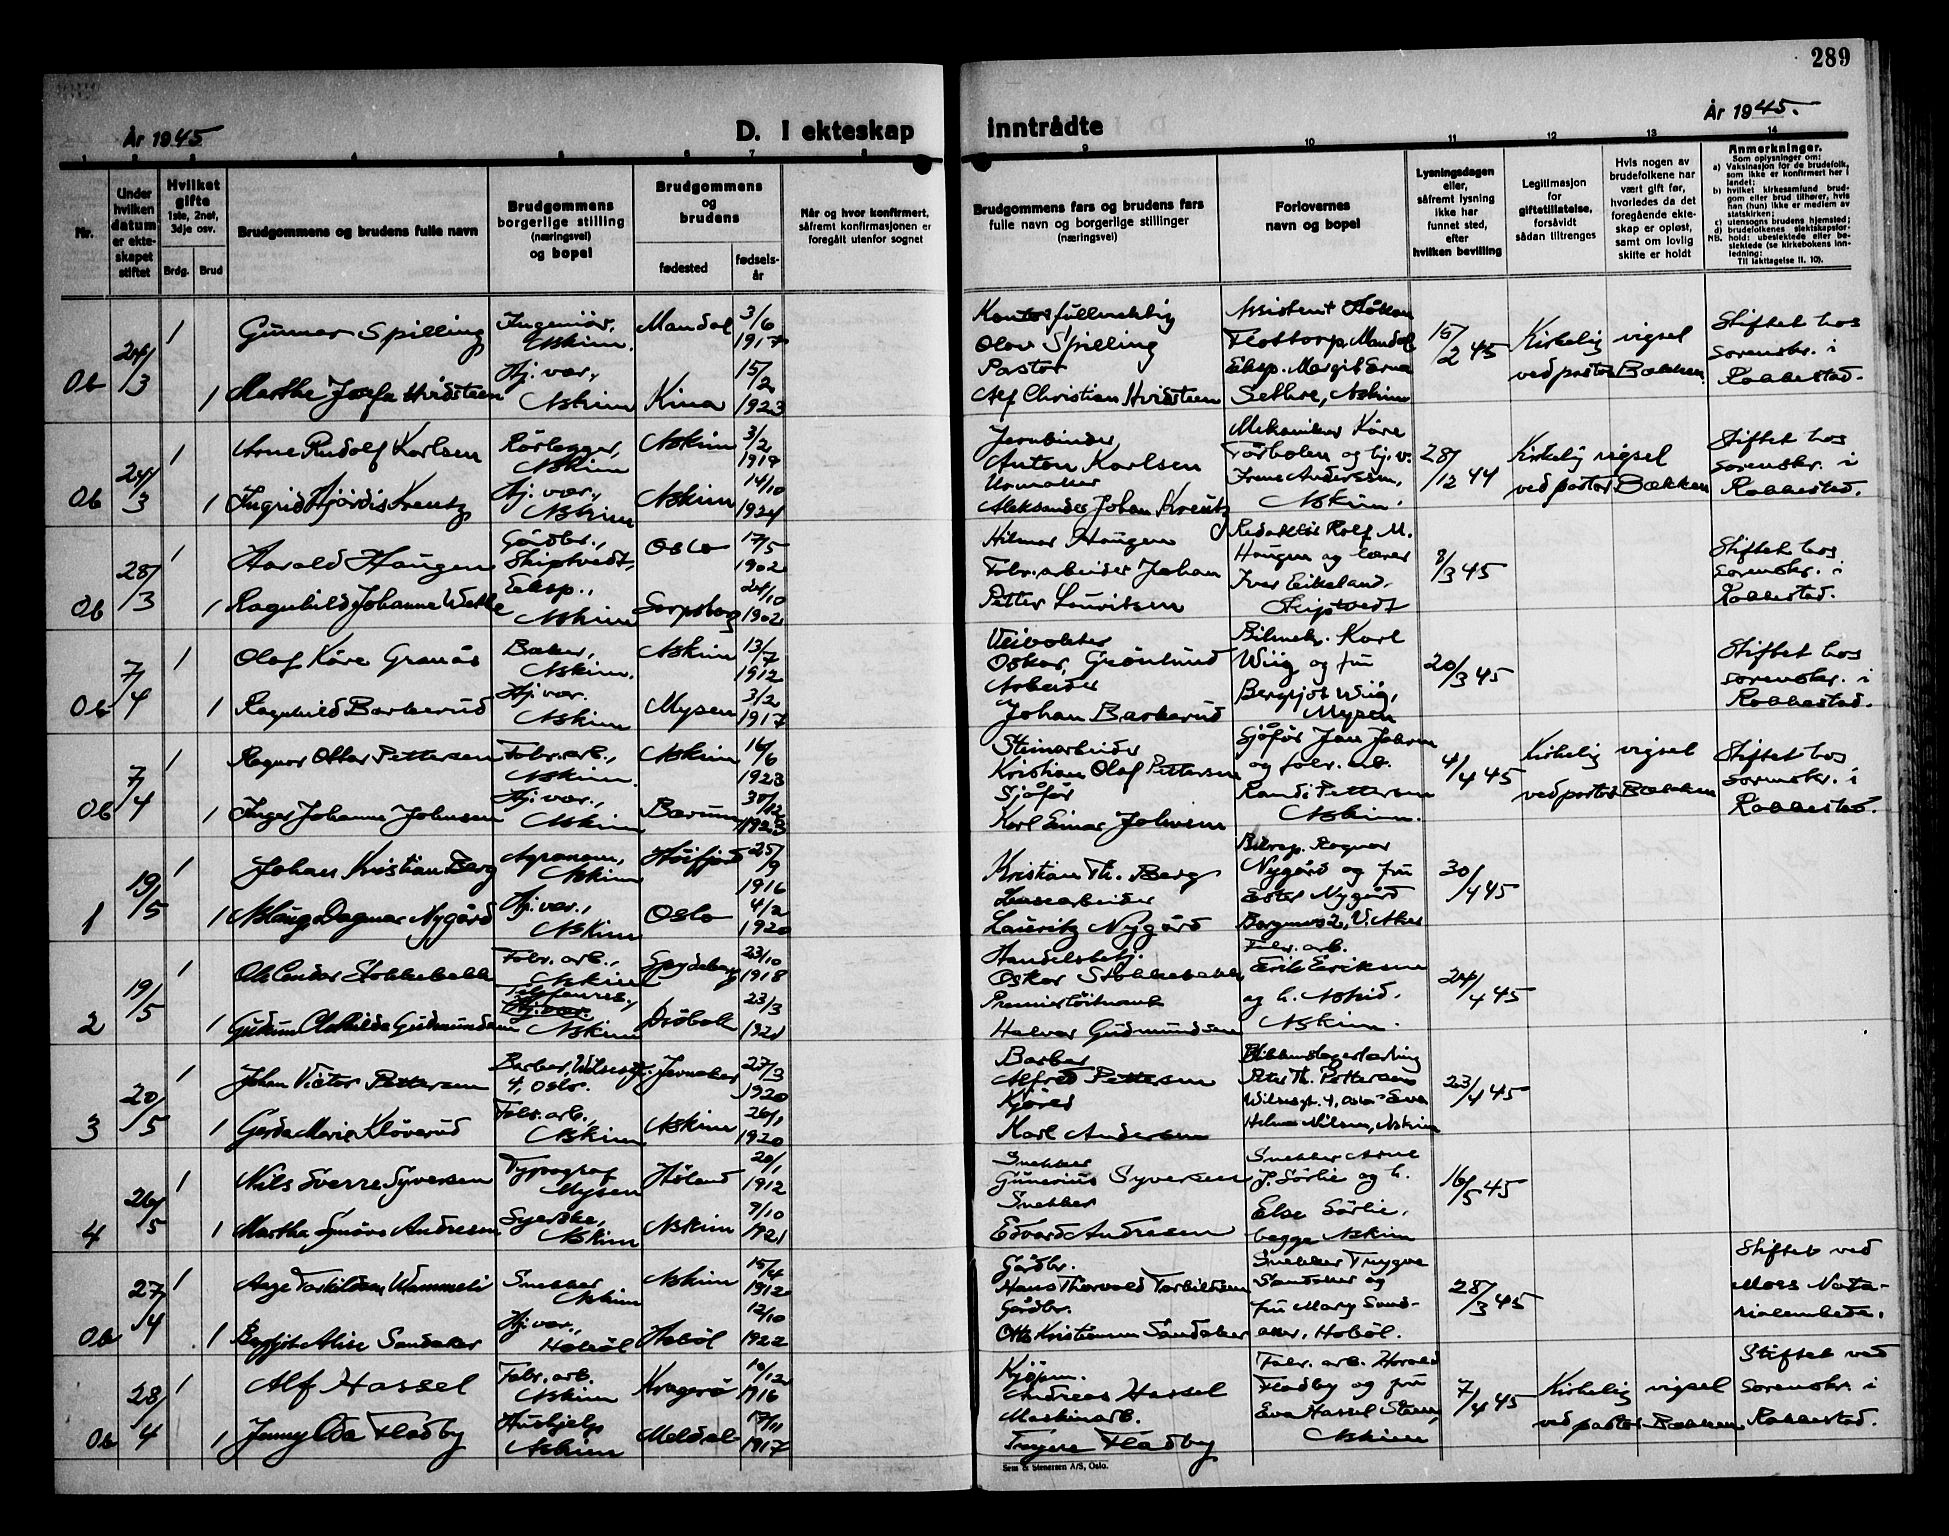 289
År 1945
D. I ekteskap inntrådte
År 1945.
1 2 3 4 5 6 7 8 9 10 11 12 13 14
Nr.
Under hvilken datum er ekteskapet stiftet
Hvilket gifte 1ste, 2net, 3dje osv.
Brdg. Brud
Brudgommens og brudens fulle navn
Brudgommens borgerlige stilling (næringsvei) og bopel
Brudgommens og brudens
fødested
fødselsår
Når og hvor konfirmert, såfremt konfirmasjonen er foregått utenfor sognet
Brudgommens fars og brudens fars fulle navn og borgerlige stillinger (næringsvei)
Forlovernes navn og bopel
Lysningsdagen eller, såfremt lysning ikke har funnet sted, efter hvilken bevilling
Legitimasjon for giftetillatelse, forsåvidt sådan tiltrenges
Hvis nogen av brudefolkene har vært gift før, hvorledes da det foregående ekteskap er opløst, samt om lovlig skifte er holdt
Anmerkninger.
Som oplysninger om:
a) Vaksinasjon for de brudefolk, som ikke er konfirmert her i landet;
b) hvilket kirkesamfund brudgom eller brud tilhører, hvis han (hun) ikke er medlem av statskirken;
c) utensogns brudens hjemsted;
d) brudefolkenes slektskapsforhold: ubeslektede eller beslektede (se kirkebokens innledning: NB. Til iakttagelse II. 10).
Ob 24/3 1 Gunnar Spilling Ingeniør, Askim. Mandal 3/6 1917 Kontorfullmektig Olav Spilling Assistent Håkon Flottorp, Mandal 15/2 45 Kirkelig vigsel ved pastor Bækken. Stiftet hos sorenskr. i Rakkestad.
1 Marthe Josefa Hvidsteen Hj. vær., Askim Kina 15/2 1923 Pastor Alf Christian Hvidsteen Eksp. Margit Erna Sethre, Askim
Ob 24/3 1 Arne Rudolf Karlsen Rørlegger, Askim Askim 3/2 1919 Jernbinder, Anton Karlsen Mekaniker Kåre Torbolen og hj. v. 28/12 44 Kirkelig vigsel ved pastor Bækken Stiftet hos sorenskr. i Rakkestad.
1 Ingrid Hjördis Kreutz Hj. vær., Askim Askim 14/10 1924 Urmaker Aleksander Johan Kreutz Irene Andersen, Askim.
Ob 28/3 1 Harald Haugen Gårdbr., Skiptvedt, Oslo 17/5 1902 Hilmar Haugen Redaktör Rolf M. Haugen og lærer 8/3 45 Stiftet hos sorenskr. i Rakkestad.
1 Ragnhild Johanne Wetle Eksp., Askim Sarpsborg 24/10 1902 Fabr. arbeider Johan Petter Lauritsen Iver Eikeland. Skiptvedt
Ob 7/4 1 Olaf Kåre Granås Baker, Askim. Askim 13/7 1912 Veivokter Oskar Grönlund Bilmek. Karl Wiig og fru 20/3 45 Stiftet hos sorenskr. i Rakkestad.
1 Ragnhild Barkerud Hj. vær. Askim Mysen 3/2 1917 Arbeider Johan Barkerud Bergljot Wiig, Mysen
Ob 7/4 1 Ragnar Ottar Pettersen Fabr. arb., Askim. Askim 16/6 1923 Steinarbeider Kristian Olaf Pettersen Sjåfør Jan Johnsen og fabr. arb. 4/4 45 Kirkelig vigsel ved pastor Bækken Stiftet hos sorenskr. i Rakkestad.
1 Inger Johanne Johnsen Hj. vær., Askim Bærum 30/12 1923 Sjåfør Karl Einar Johnsen Randi Pettersen Askim.
1 19/5 1 Johan Kristian Berg Agronom, Askim 25/9 1916 Kristian Th. Berg Ragnar Nygård og fru 30/4 45
1 Aslaug Dagmar Nygård Hj. vær., Askim Oslo 4/2 1920 Lauritz Nygård Ester Nygård V. Aker
2 19/5 1 Ole Stokkebekk Fabr. arb., Askim Spydeberg 23/10 1918 Handelsbetj. Oskar Stokkebekk Fabr. arb. Erik Eriksen 24/4 45
1 Gudrun Clothilda Gudmundsen Hj. vær. Askim Dröbak 23/3 1921 Premierlöitnant Halvar Gudmundsen og h. Astrid. Askim.
3 20/5 1 Johan Victor Pettersen Barber, Wilsesgt. 4, Oslo. Jevnaker 27/3 1920 Barber Alfred Pettersen Blikkenslagerlærling Peter Th. Pettersen 23/4 45
1 Gerda Marie Klöverud Fabr. arb., Askim Askim 26/1 1920 Kjörer Karl Andersen Wilsesgt. 4, Oslo - Eva Helene Nilsen, Askim
4 26/5 1 Nils Sverre Syversen Typograf Mysen Høland 20/1 1912 Snekker Gunerius Syversen Snekker Arne J. Sörlie og h. 16/5 45
1 Martha Synöve Andresen Syerske, Askim Askim 9/10 1921 Snekker Edvard Andresen Else Sörlie, begge Askim
Ob 27/4 1 Aage Torkildsen Wammeli Snekker Askim Askim 15/4 1912 Gårdbr. Hans Thorvald Torkildsen Snekker Trygve Sandaker og 28/3 45 Stiftet ved Moss Notarialembete.
1 Bergljot Alise Sandaker Hj. vær, Hobøl Hobøl 12/10 1922 Gårdbr. Otto Kristian Sandaker fru Mary Sandaker, Hobøl.
Ob 28/4 1 Alf Hassel Fabr. arb. Askim Kragerø 10/12 1916 Kjøpm. Andreas Hassel Fabr. arb. Harald Fladby og fru 7/4 45 Kirkelig vigsel ved pastor Bækken Stiftet ved sorenskr. i Rakkestad.
1 Jenny Oda Fladby Hushjelp Askim Meldal 17/11 1917 Maskinarb. Trygve Fladby Eva Hassel Askim
Sem & Stenersen A/S, Oslo.